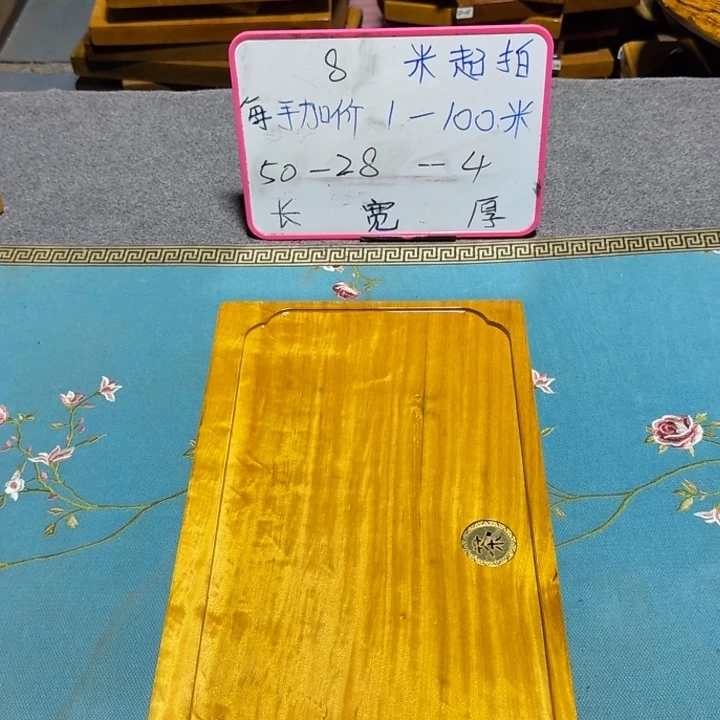 8 米起拍
每手加价 1-100米
50-28-4
长 宽 厚
茶